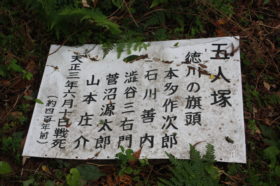 五人塚
徳川の旗頭
本多作次郎
石川善内
澁谷三右門
菅沼源太郎
山本庄介
天正三年六月十日戦死
(約四百年前)